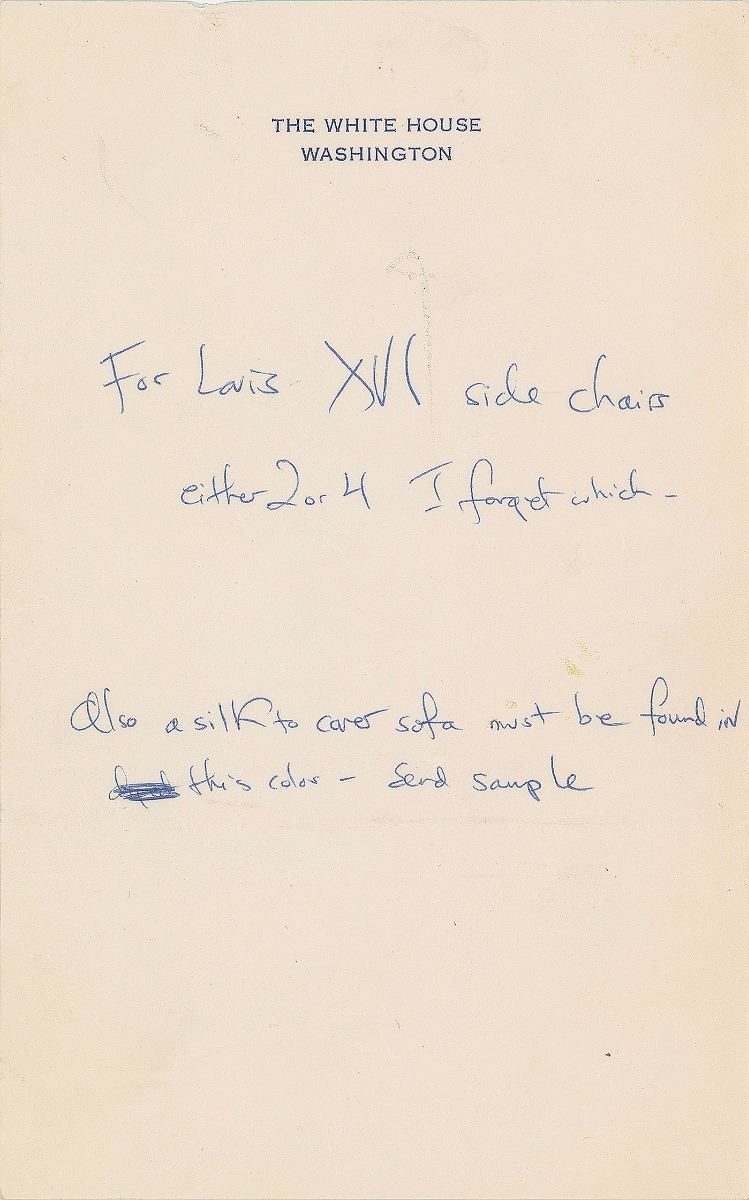 THE WHITE HOUSE
WASHINGTON
For Louis XVI side chairs
either 2 or 4 I forget which -
Also a silk to cover sofa must be found in
this color - Send sample